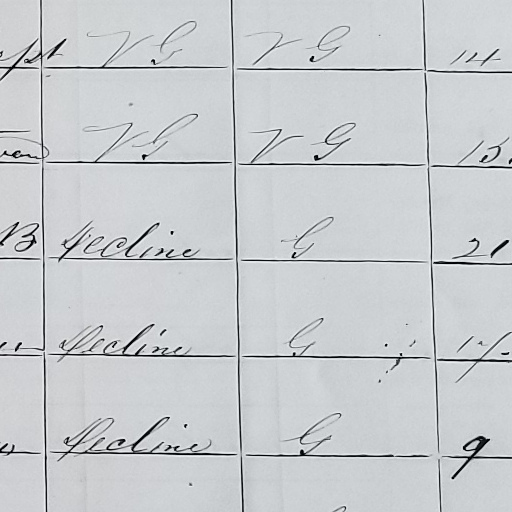 V G V G 14
V G V G 15
B Decline G 21
Decline G 17
Decline G 9